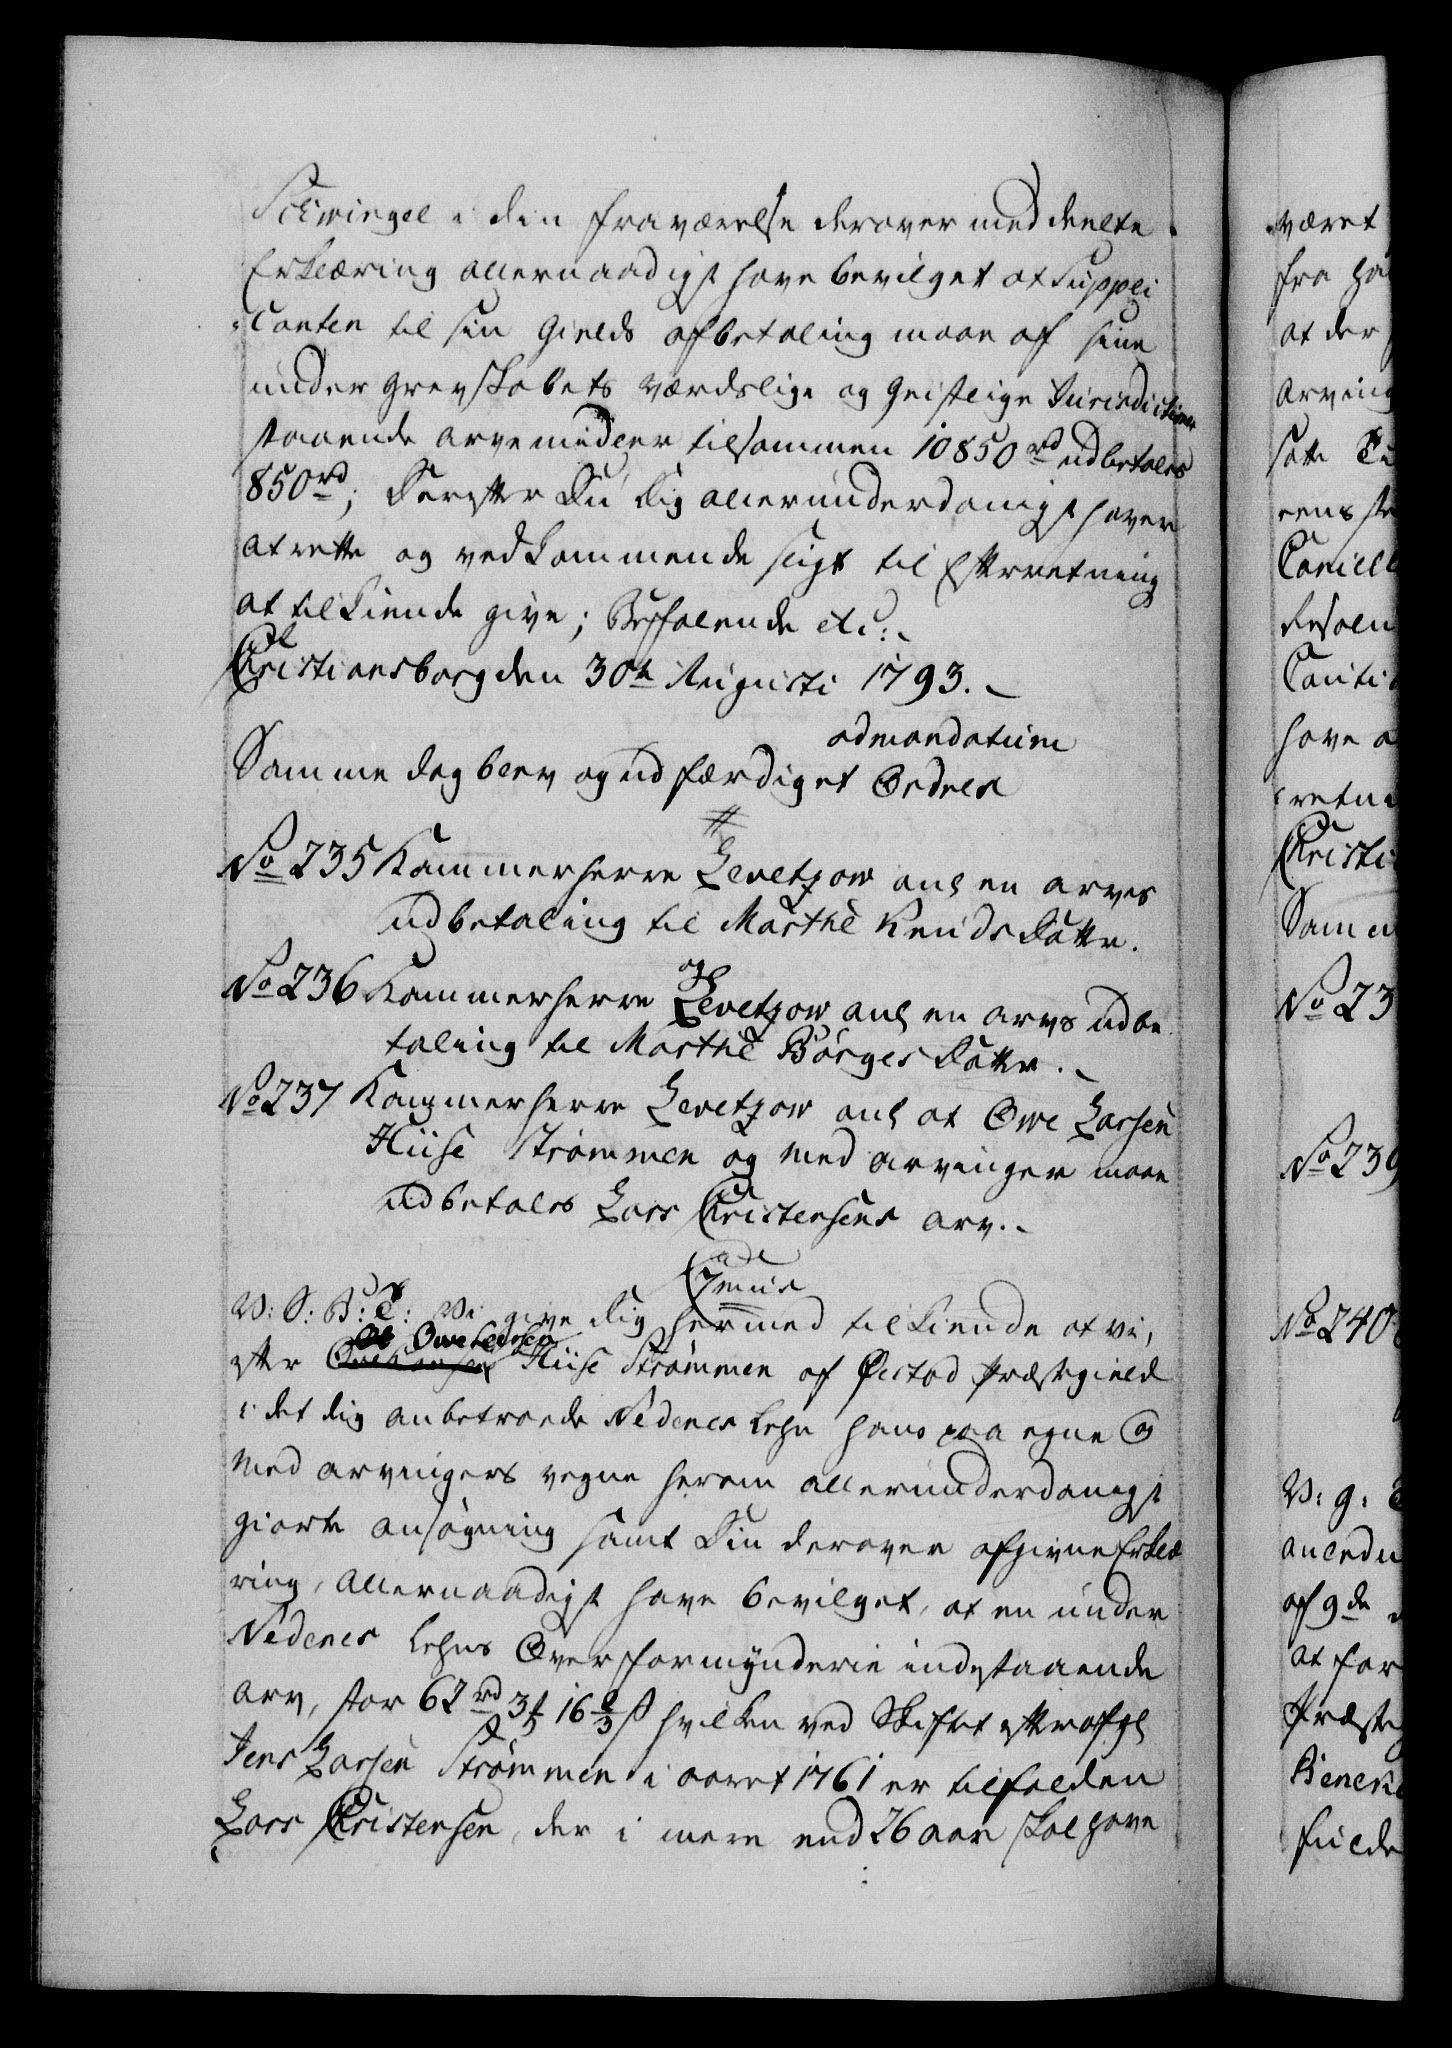 Schwingel i din fraværelse derover meddeelte
Erklæring allernaadigst have bevilget at Suppli
canten til sin Gields afbetaling maae af sine
under Grevskabets værdslige og Geistlige Jurisdictioner
staaende arvemidler tilsammen 10850 rd udbetales
850 rd; Derefter Du Dig allerunderdanigst haver
at rette og vedkommende sligt til Efterretning
at tilkiende give; Befalende etc:
Christiansborg den 30te Augusti 1793.
ad mandatum
Samme dag blev og udfærdiget Ordres
No 235 Kammerherre Levetzow anl en arves
udbetaling til Marthe Knuds Datter.
No 236 Kammerherre Levetzow anl en arvs udbe
taling til Marthe Børges Datter.
No 237 Kammerherre Levetzow anl at Owe Larsen
Hiise Strømmen og med arvinger maae
udbetales Lars Christensens arv.
C 7mus
V: S: B: T: Vi give Dig hermed tilkiende at vi,
Owe Larsen
efter Hiise Strømmen af Øiestad Præstegield
i det dig anbetroede Nedenes Lehn hans paa egne og
Med arvingers vegne herom allerunderdanigst
giorte ansøgning samt Din derover afgivne Erklæ
ring, allernaadigst have bevilget, at en under
Nedenes Lehns Overformynderie indestaaende
arv, stor 62 rd 3 16 2/3 s hvilken ved Skiftet efter afgl
Jens Larsen Strømmen i aaret 1761 er tilfalden
Lars Christensen, der i mere end 26 aar skal have
været
at der
Samm
No 23
No 239
No 240
V: g:
af 9de
at for